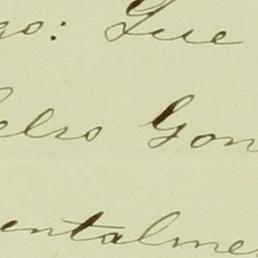 go: Que
elso Gon
entalme